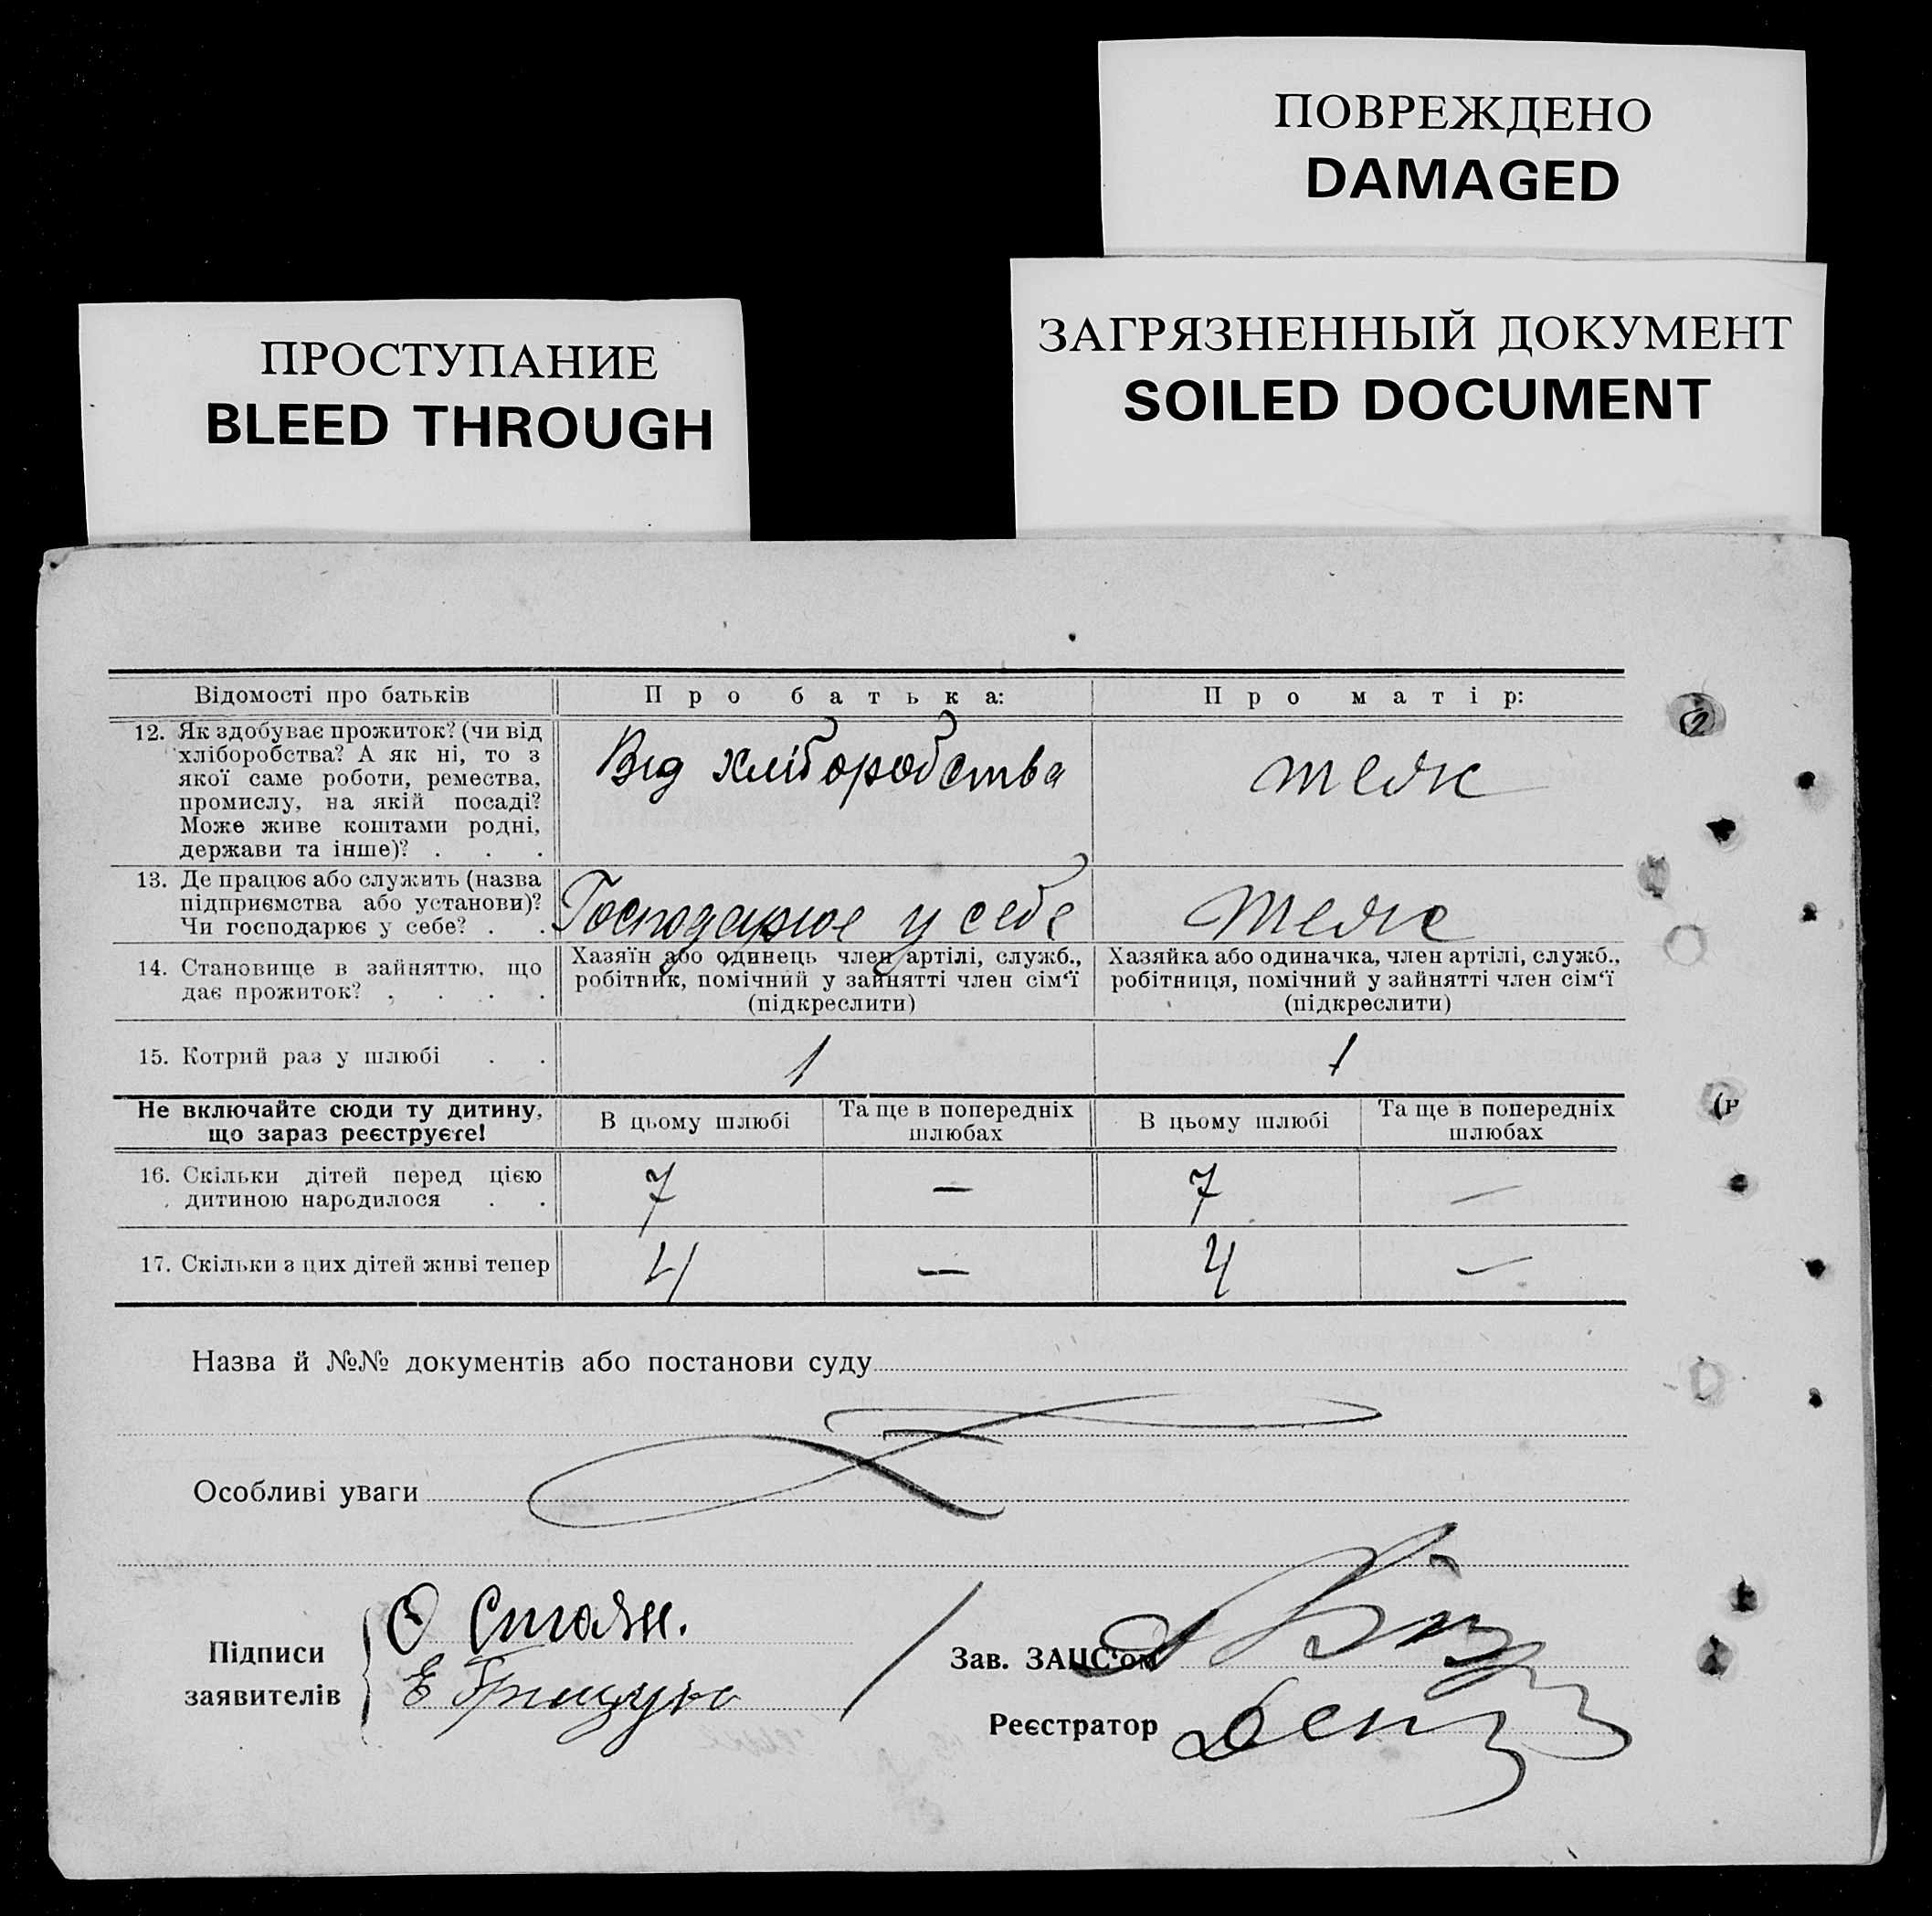 ПОВРЕЖДЕНО
DAMAGED
ЗАГРЯЗНЕННЫЙ ДОКУМЕНТ
SOILED DOCUMENT
ПРОСТУПАНИЕ
BLEED THROUGH
Відомості про батьків
Про батька:
Про матір:
12. Як здобуває прожиток? (чи від
хліборобства? А як ні, то з
якої саме роботи, ремества,
промислу, на якій посаді?
Може живе коштами родні,
держави та інше)? . . .
Від хліборобства
теж
13. Де працює або служить (назва
підприємства або установи)?
Чи господарює у себе? . .
Господарює у себе
теж
14. Становище в зайняттю, що
дає прожиток? . . . .
Хазяїн або одинець член артілі, служб.,
робітник, помічний у зайнятті член сім‘ї
(підкреслити)
Хазяйка або одиначка, член артілі, служб.,
робітниця, помічний у зайнятті член сім‘ї
(підкреслити)
15. Котрий раз у шлюбі . .
1
1
Не включайте сюди ту дитину,
що зараз реєструєте!
В цьому шлюбі
Та ще в попередніх
шлюбах
В цьому шлюбі
Та ще в попередніх
шлюбах
16. Скільки дітей перед цією
дитиною народилося . .
7
—
7
—
17. Скільки з цих дітей живі тепер
4
—
4
—
Назва й №№ документів або постанови суду
Особливі уваги
Підписи
заявителів
О Стоян.
Е Грищук
Зав. ЗАЦС‘ом
Реєстратор